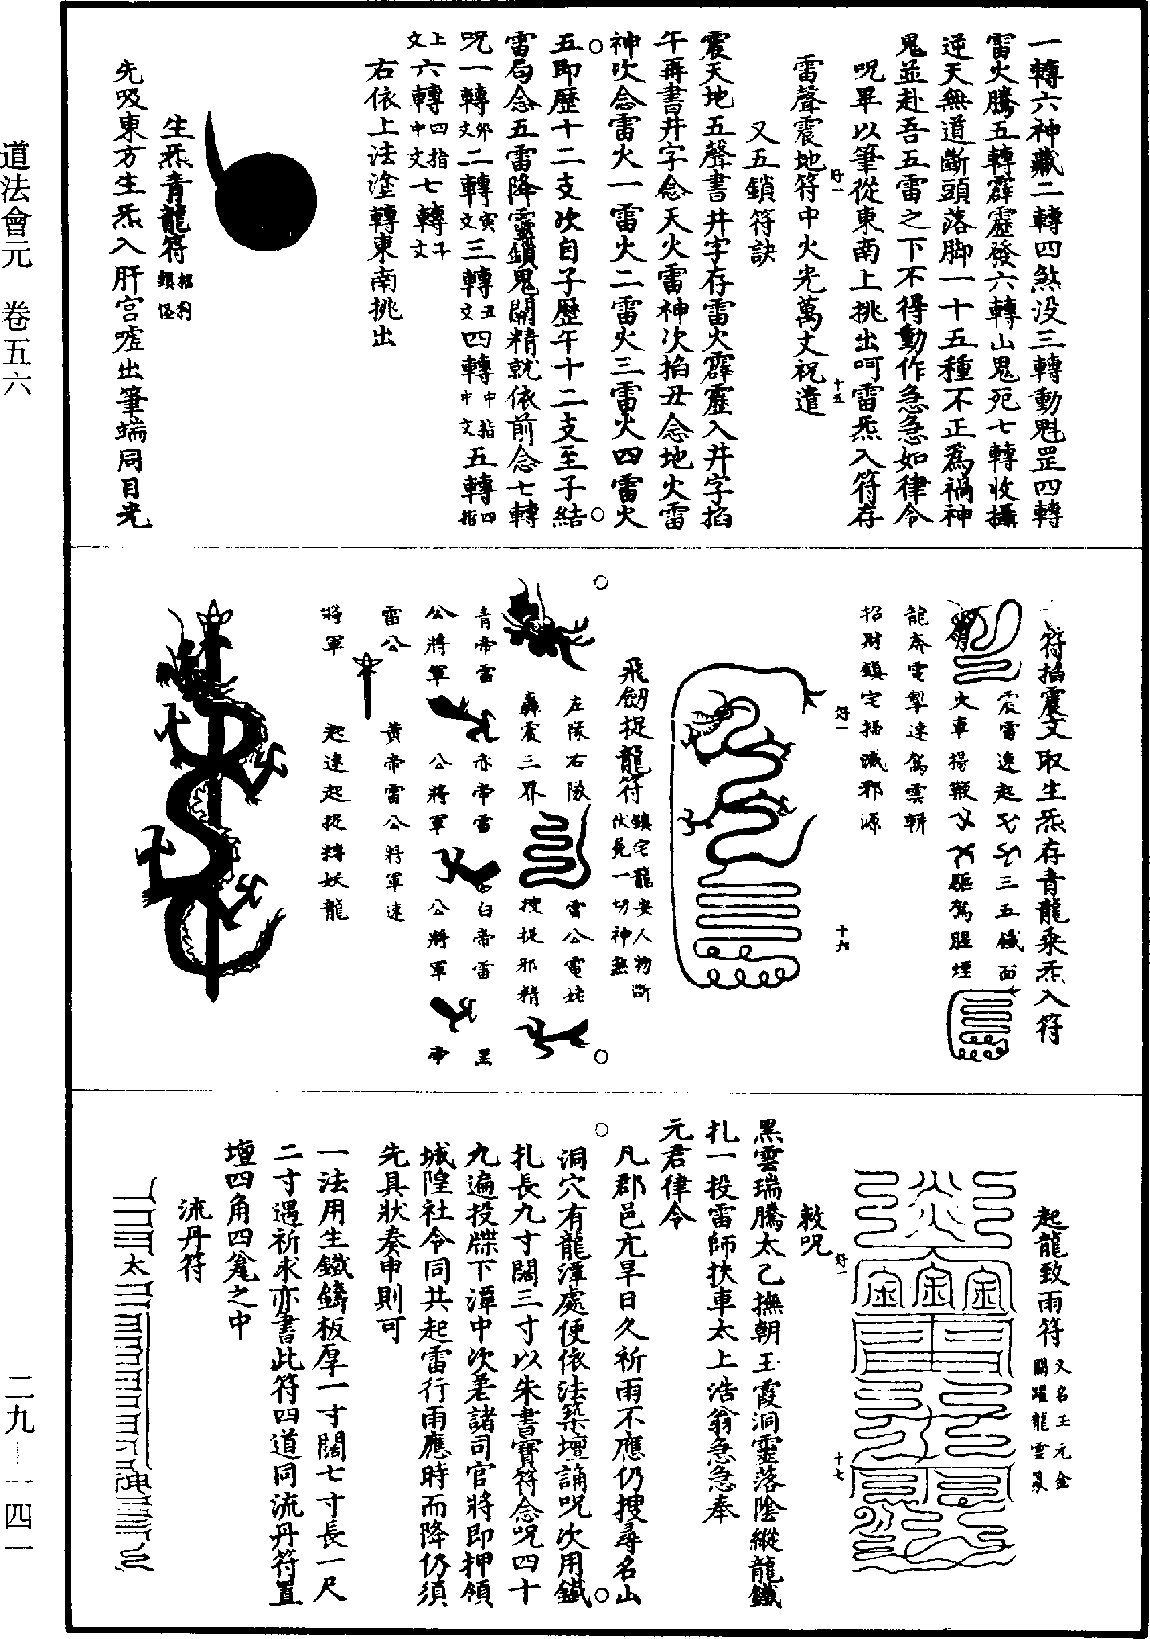 一轉六神藏二轉四煞沒三轉動魁罡四轉
雷火騰五轉霹靂發六轉山鬼死七轉收攝
逆天無道斷頭落脚一十五種不正為禍神
鬼並赴吾五雷之下不得動作急急如律令
呪畢以筆從東南上挑出呵雷炁入符存
雷聲震地符中火光萬丈祝遣
又五鎖符訣
震天地五聲書井字存雷火霹靂入井字掐
午再書井字念天火雷神次掐丑念地火雷
神次念雷火一雷火二雷火三雷火四雷火
五即歷十二支次自子歷午十二支至子結
雷局念五雷降靈鎖鬼關精就依前念七轉
呪一轉卯文二轉寅文三轉丑文四轉中指中文五轉四指
上文六轉四指中文七轉斗文
右依上法塗轉東南挑出
生炁青龍符
先吸東方生炁入肝宮噓出筆端同目光
符掐震文取生炁存青龍乘炁入符
震雷速起 三五鐵面
火車揚鞭 驅駕腥煙
龍奔電掣速駕雲輧
招財鎮宅掃滅邪源
飛劍捉龍符鎮宅龍安人物斷伏屍一切神煞
左隊右隊 雷公電姥
轟震三界 搜捉邪精
青帝雷 赤帝雷 白帝雷 黑
公將軍 公將軍 公將軍 帝
雷公 黃帝雷公將軍速
將軍 起速起捉將妖龍
起龍致雨符又名玉元金關躍龍雲篆
敕呪
黑雲瑞騰太乙撫朝玉霞洞靈落陰縱龍鐵
札一投雷師扶車太上浩翁急急奉
元君律令
凡郡邑亢旱日久祈雨不應仍搜尋名山
洞穴有龍潭處便依法築壇誦呪次用鐵
札長九寸闊三寸以朱書寶符念呪四十
九遍投牒下潭中次差諸司官將即押領
城隍社令同共起雷行雨應時而降仍須
先具狀奏申則可
一法用生鐵鑄板厚一寸闊七寸長一尺
二寸遇祈求亦書此符四道同流丹符置
壇四角四瓮之中
流丹符
太
神
道法會元 卷五六
二九—一四一